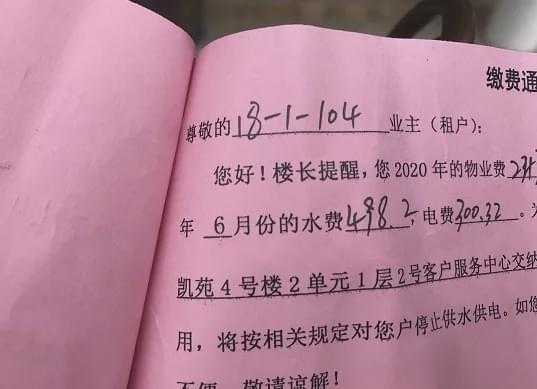 缴费通
尊敬的18-1-104业主（租户）：
您好！楼长提醒，您 2020 年的物业费
年 6 月份的水费498.2，电费300.32。
凯苑 4 号楼 2 单元 1 层 2号客户服务中心交纳
用，将按相关规定对您户停止供水供电。如您
不便，敬请谅解！